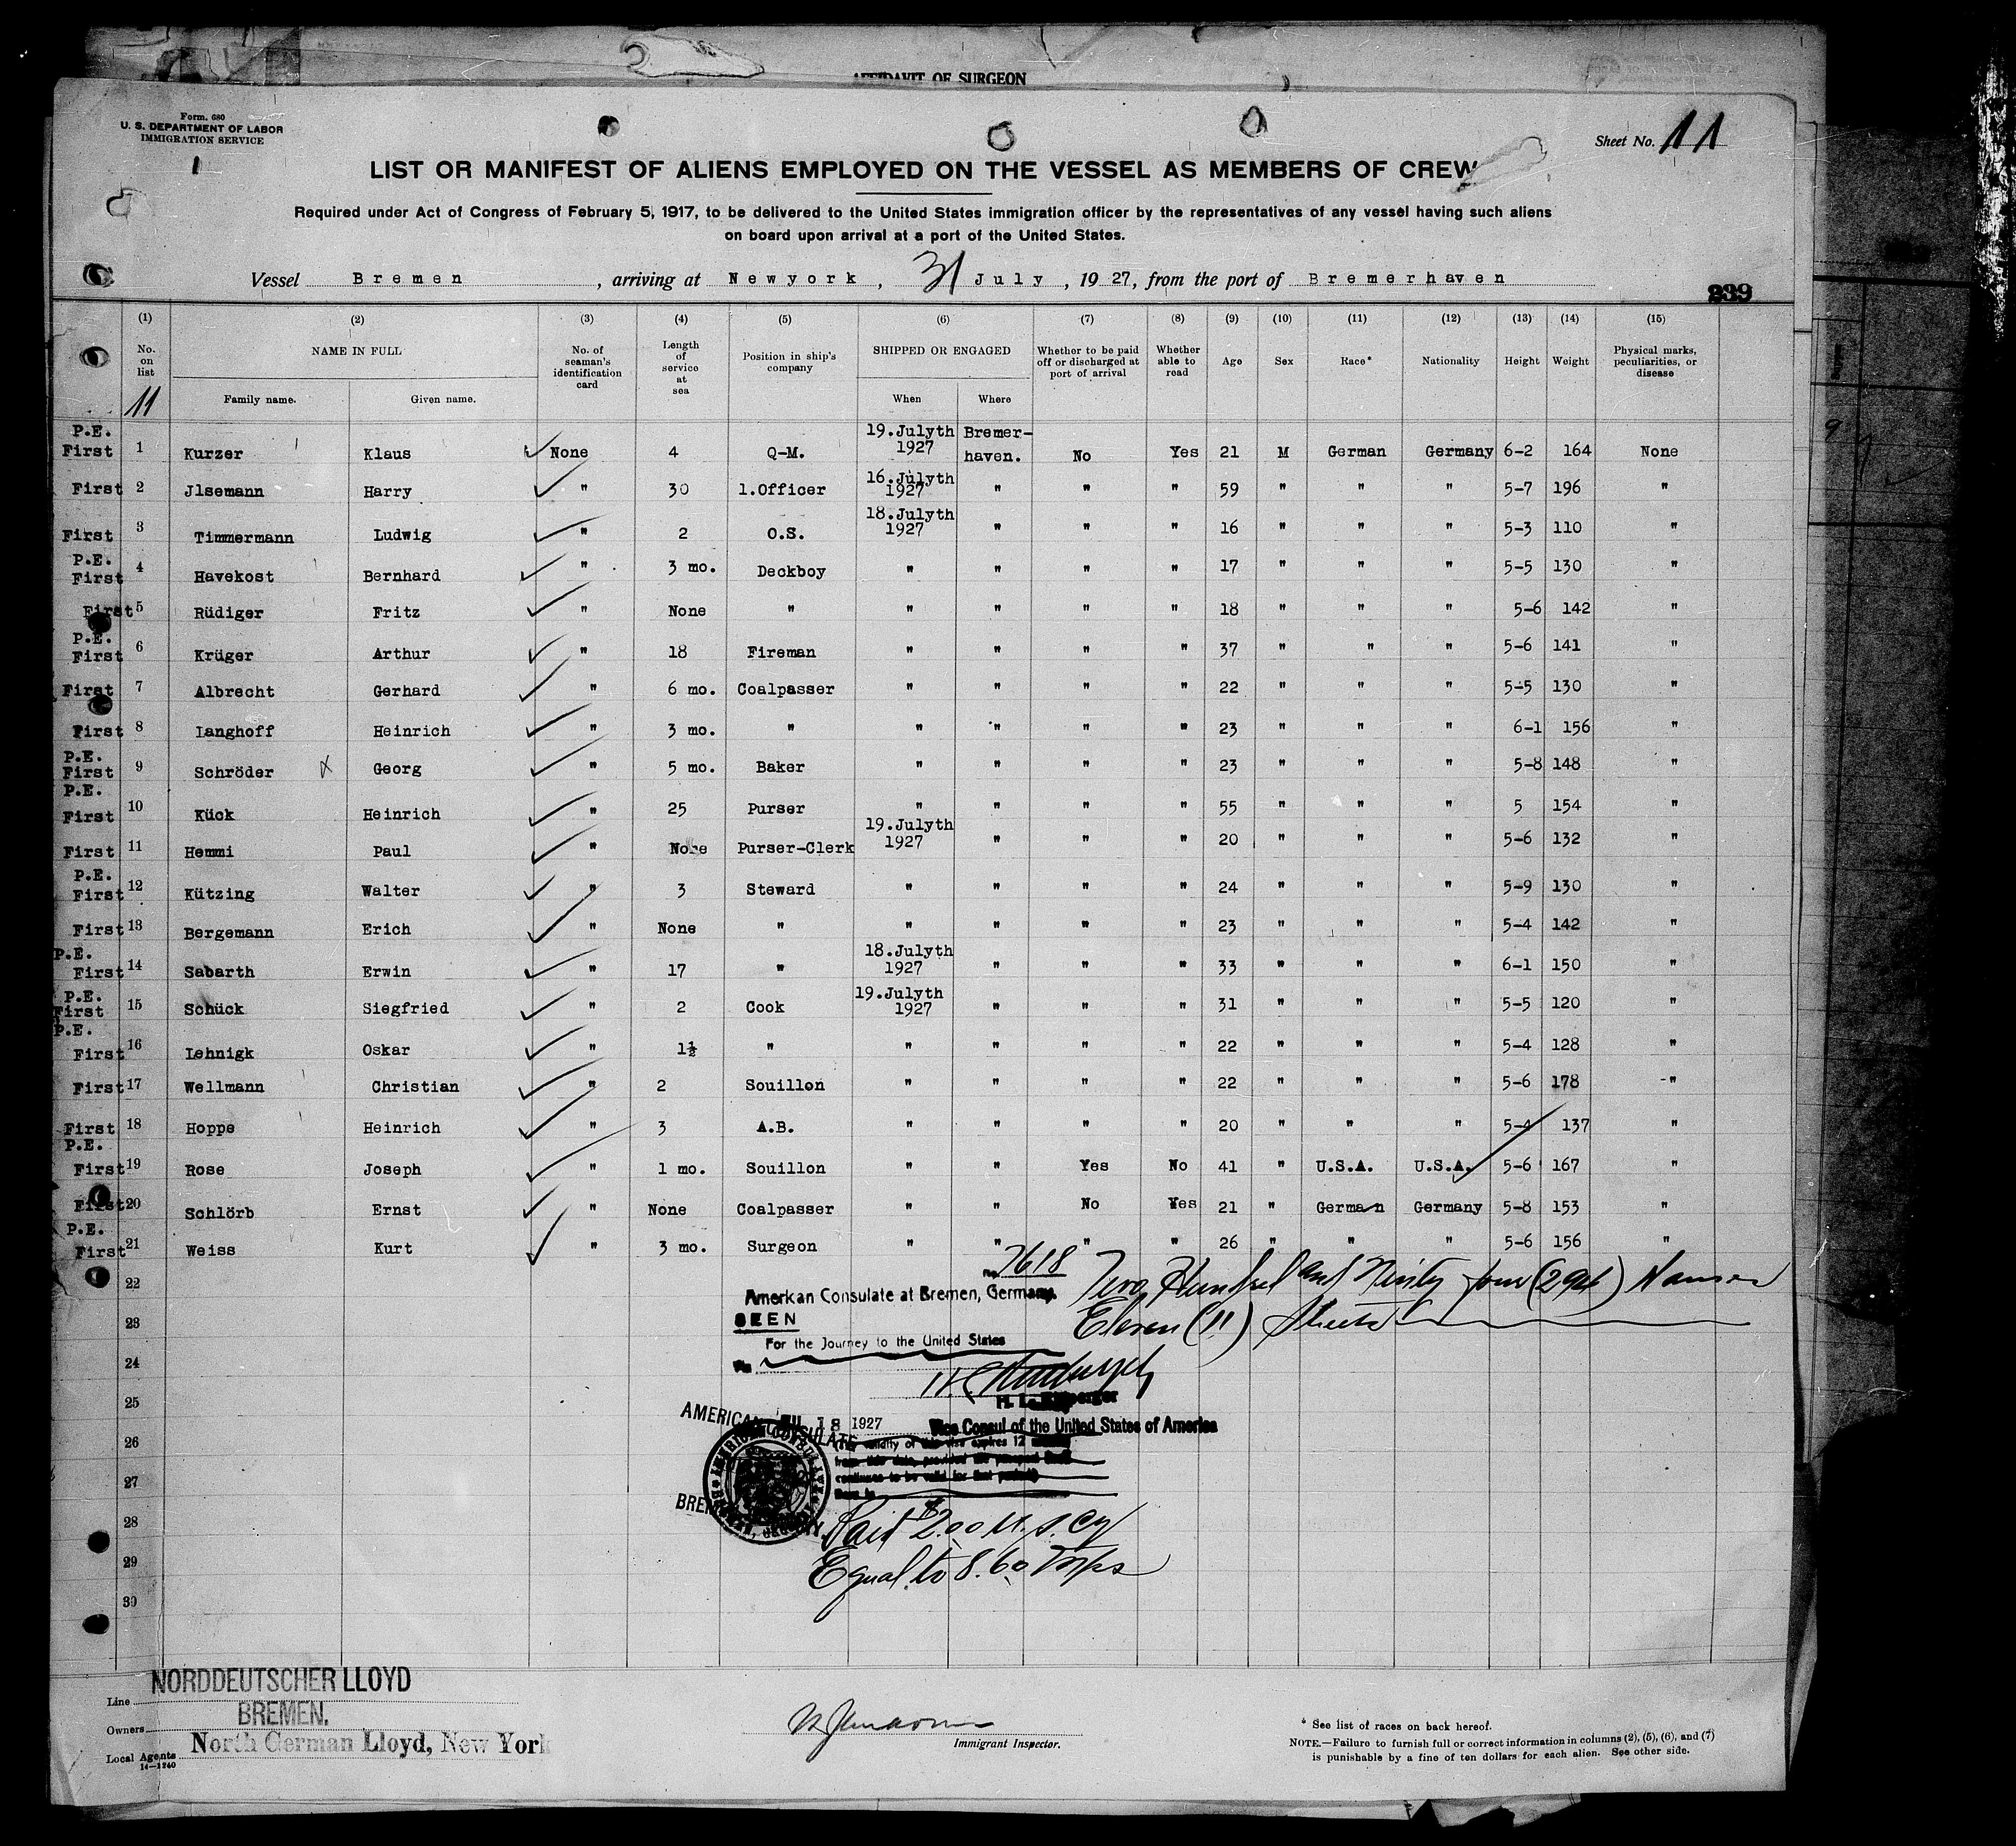 AFFIDAVIT OF SURGEON
Form. 680
U. S. DEPARTMENT OF LABOR
IMMIGRATION SERVICE
1
Sheet No. 11
LIST OR MANIFEST OF ALIENS EMPLOYED ON THE VESSEL AS MEMBERS OF CREW
Required under Act of Congress of February 5, 1917, to be delivered to the United States immigration officer by the representatives of any vessel having such aliens
on board upon arrival at a port of the United States.
Vessel Bremen, arriving at Newyork, 31 July, 1927, from the port of Bremerhaven
239
(1) (2) (3) (4) (5) (6) (7) (8) (9) (10) (11) (12) (13) (14) (15)
No. on list NAME IN FULL No. of seaman's identification card Length of service at sea Position in ship's company SHIPPED OR ENGAGED Whether to be paid off or discharged at port of arrival Whether able to read Age Sex Race* Nationality Height Weight Physical marks, peculiarities, or disease
11 Family name. Given name. When Where
P.E. First 1 Kurzer Klaus None 4 Q-M. 19.Julyth 1927 Bremer-haven. No Yes 21 M German Germany 6-2 164 None
First 2 Jlsemann Harry " 30 1.Officer 16.Julyth 1927 " " " 59 " " " 5-7 196 "
First 3 Timmermann Ludwig " 2 O.S. 18.Julyth 1927 " " " 16 " " " 5-3 110 "
P.E. First 4 Havekost Bernhard " 3 mo. Deckboy " " " " 17 " " " 5-5 130 "
First 5 Rüdiger Fritz " None " " " " " 18 " " " 5-6 142 "
P.E. First 6 Krüger Arthur " 18 Fireman " " " " 37 " " " 5-6 141 "
First 7 Albrecht Gerhard " 6 mo. Coalpasser " " " " 22 " " " 5-5 130 "
First 8 Langhoff Heinrich " 3 mo. " " " " " 23 " " " 6-1 156 "
P.E. First 9 Schröder Georg " 5 mo. Baker " " " " 23 " " " 5-8 148 "
P.E. First 10 Kück Heinrich " 25 Purser " " " " 55 " " " 5 154 "
First 11 Hemmi Paul " None Purser-Clerk 19.Julyth 1927 " " " 20 " " " 5-6 132 "
P.E. First 12 Kützing Walter " 3 Steward " " " " 24 " " " 5-9 130 "
First 13 Bergemann Erich " None " " " " " 23 " " " 5-4 142 "
P.E. First 14 Sabarth Erwin " 17 " 18.Julyth 1927 " " " 33 " " " 6-1 150 "
P.E. First 15 Schück Siegfried " 2 Cook 19.Julyth 1927 " " " 31 " " " 5-5 120 "
P.E. First 16 Lehnigk Oskar " 1½ " " " " " 22 " " " 5-4 128 "
First 17 Wellmann Christian " 2 Souillon " " " " 22 " " " 5-6 178 -"
First 18 Hoppe Heinrich " 3 A.B. " " " " 20 " " " 5-4 137 "
P.E. First 19 Rose Joseph " 1 mo. Souillon " " Yes No 41 " U.S.A. U.S.A. 5-6 167 "
First 20 Schlörb Ernst " None Coalpasser " " No Yes 21 " German Germany 5-8 153 "
P.E. First 21 Weiss Kurt " 3 mo. Surgeon " " " " 26 " " " 5-6 156 "
22
23
24
25
26
27
28
29
30
No. 7618
American Consulate at Bremen, Germany.
SEEN
For the Journey to the United States
Two Hundred and Ninty four (294) Names
Eleven (11) Sheets
JUL 18 1927
Vice Consul of the United States of America
AMERICAN CONSULATE
BREMEN, GERMANY
Paid $2.00 U.S. Cy
Equal to 8.60 Mks
Line NORDDEUTSCHER LLOYD
Owners BREMEN.
Local Agents North German Lloyd, New York
14-1240
Immigrant Inspector.
* See list of races on back hereof.
NOTE.—Failure to furnish full or correct information in columns (2), (5), (6), and (7)
is punishable by a fine of ten dollars for each alien. See other side.